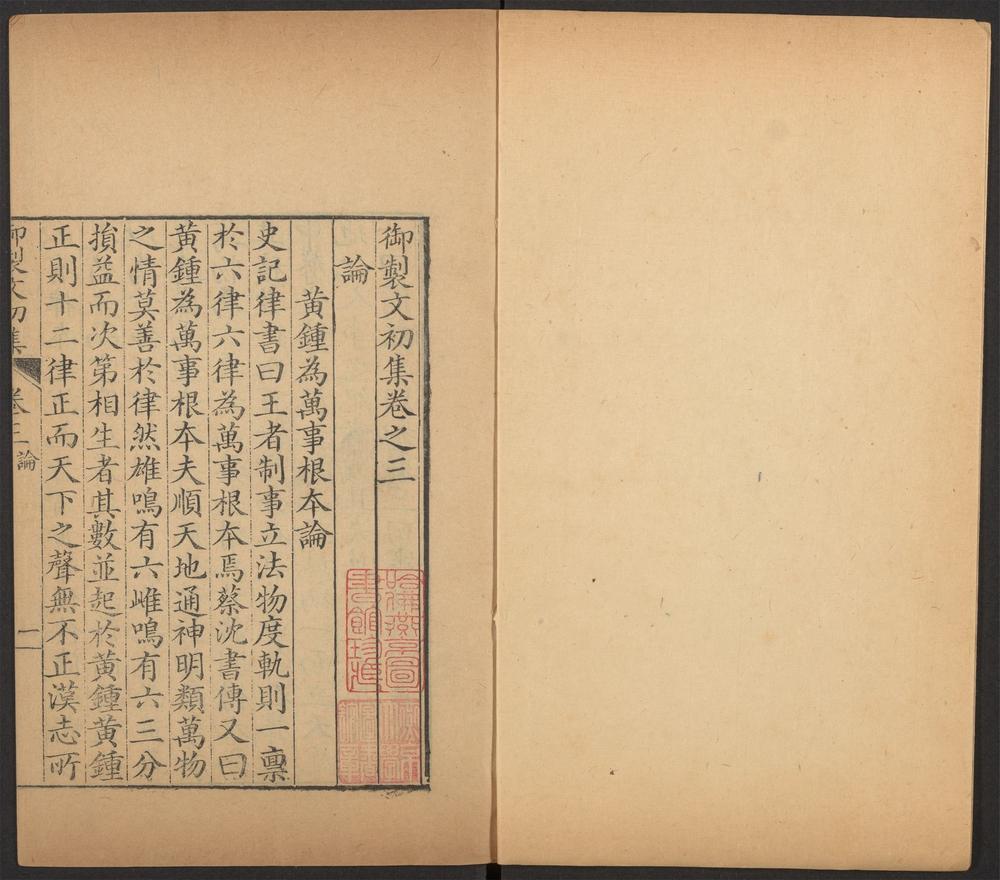 御製文初集卷之三
論
黃鍾為萬事根本論
史記律書曰王者制事立法物度軌則一稟
於六律六律為萬事根本焉蔡沈書傳又曰
黃鍾為萬事根本夫順天地通神明類萬物
之情莫善於律然雄鳴有六雌鳴有六三分
損益而次第相生者其數並起於黃鍾黃鍾
正則十二律正而天下之聲無不正漢志所
御製文初集 卷三 論 一
哈佛燕京圖
書館珍藏